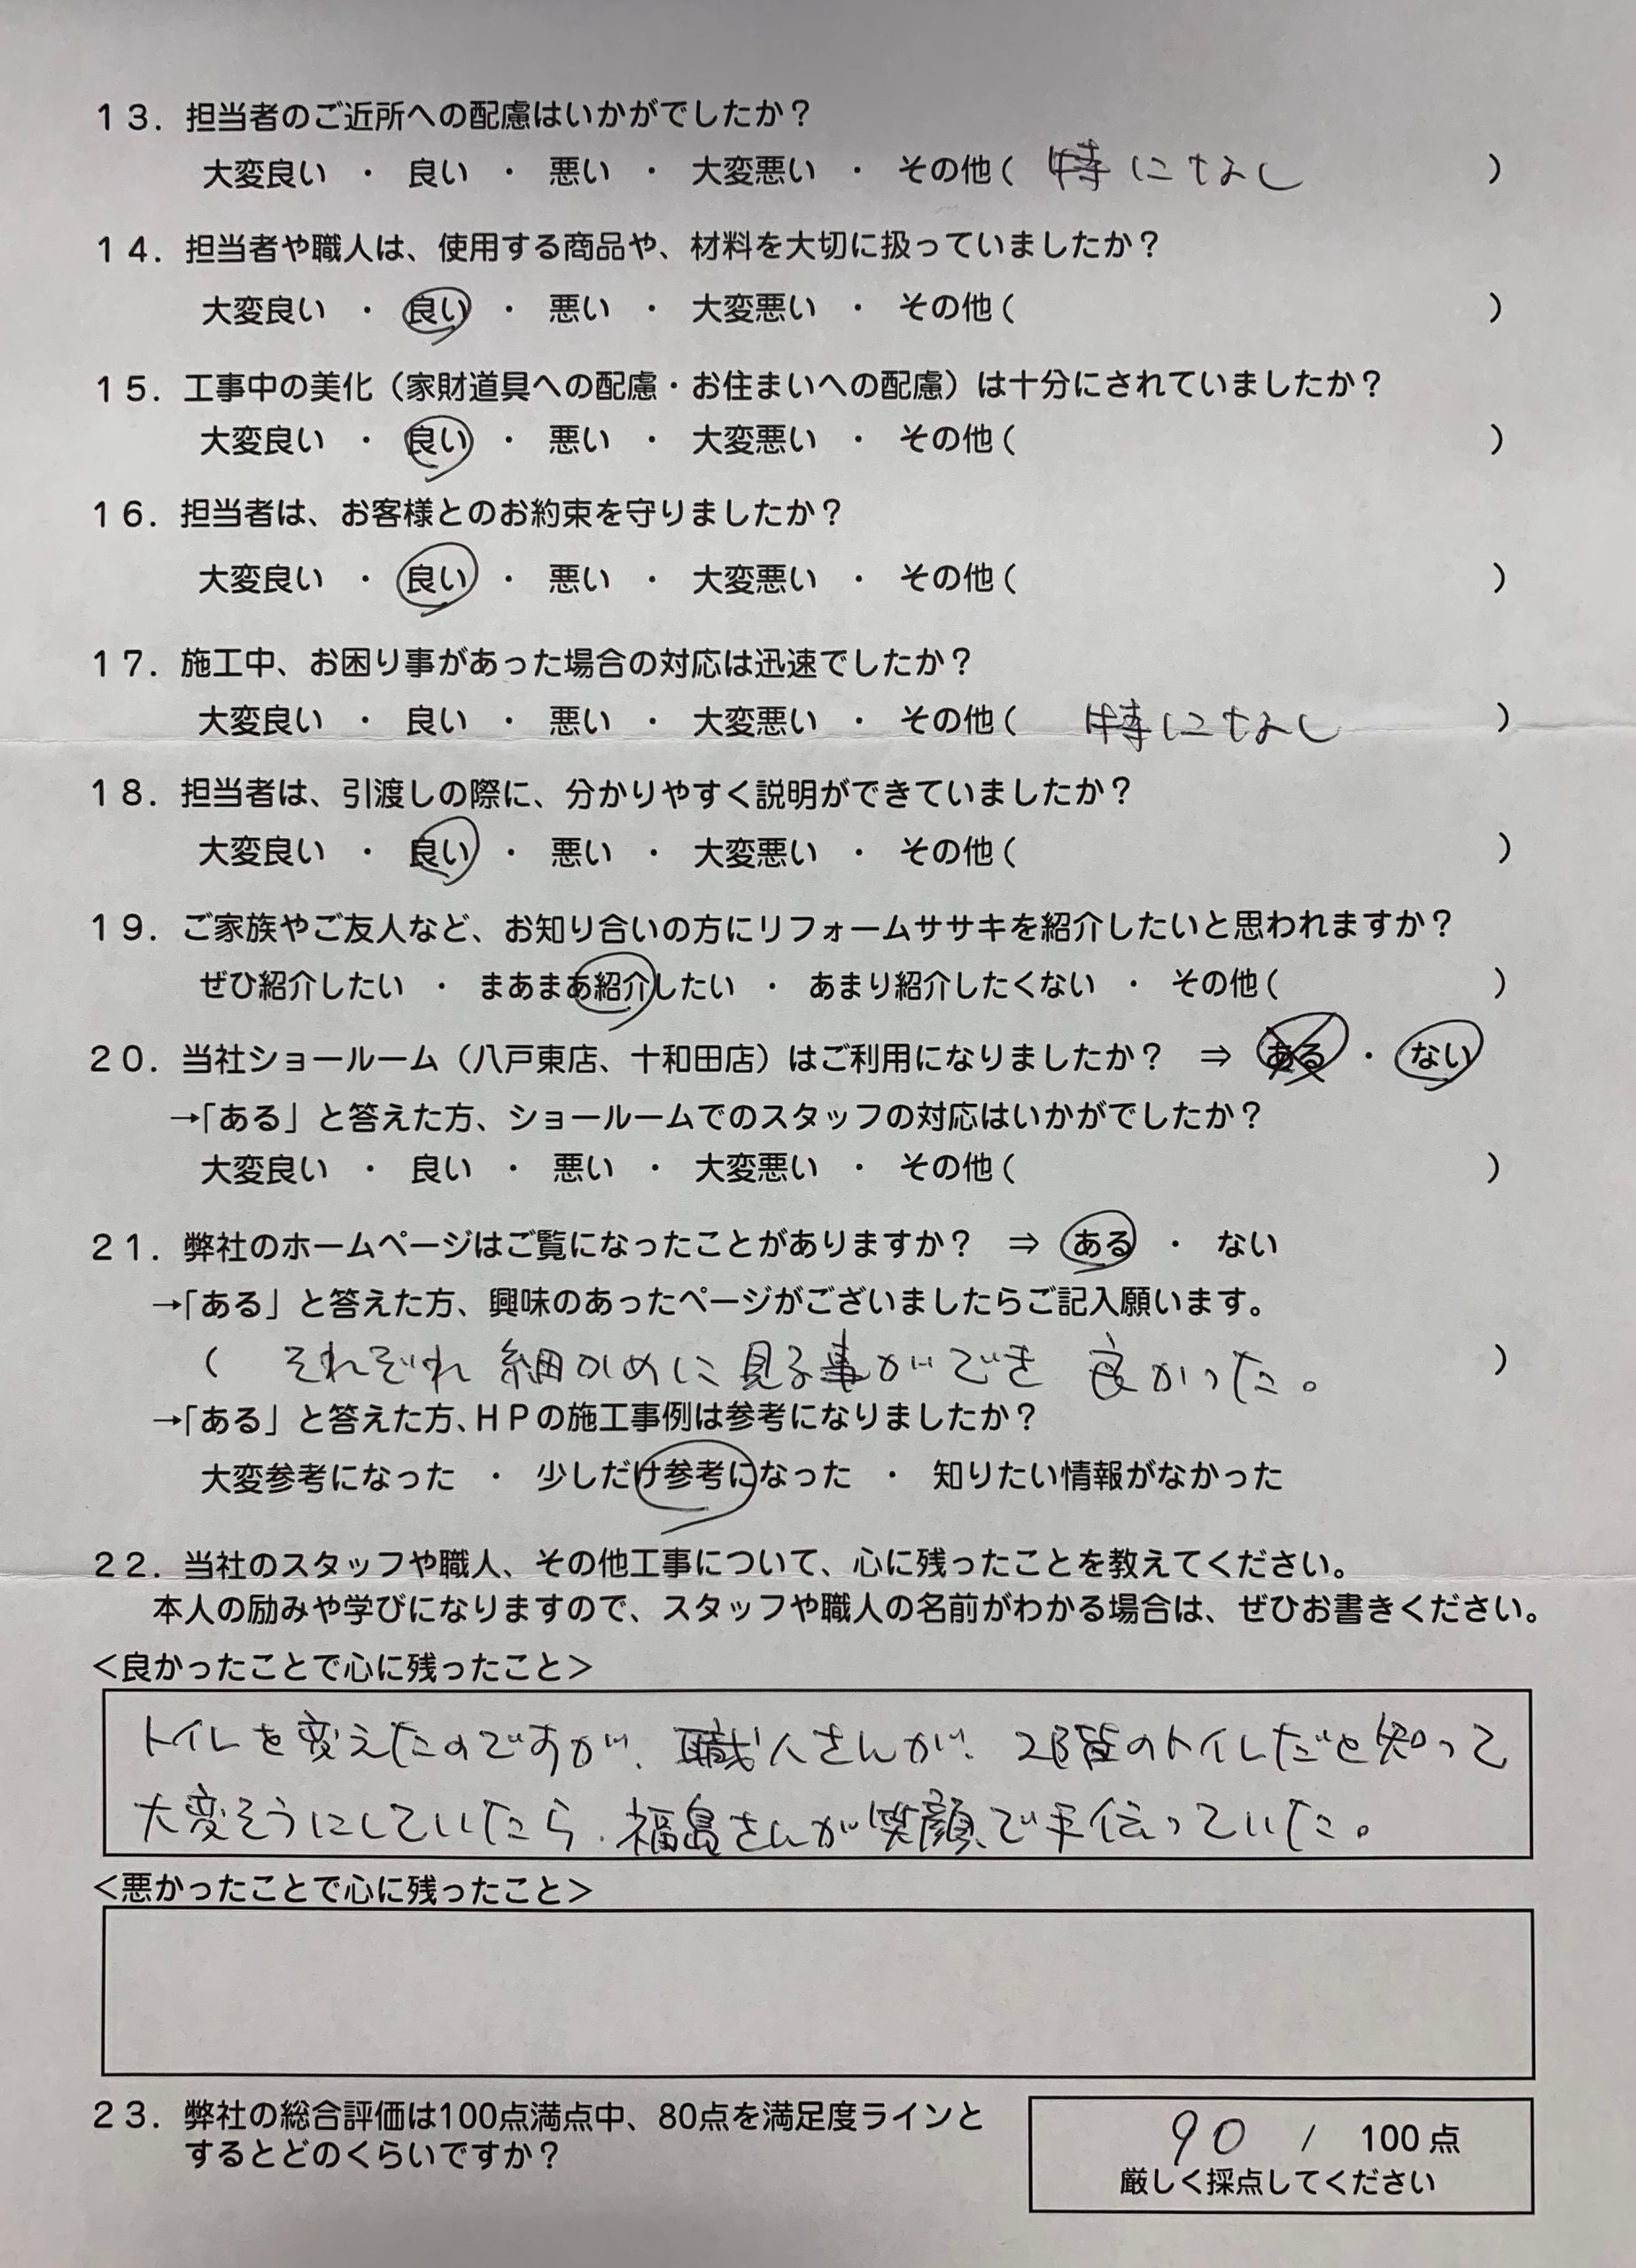 13．担当者のご近所への配慮はいかがでしたか？
大変良い ・ 良い ・ 悪い ・ 大変悪い ・ その他（ 特になし ）
14．担当者や職人は、使用する商品や、材料を大切に扱っていましたか？
大変良い ・ 良い ・ 悪い ・ 大変悪い ・ その他（ ）
15．工事中の美化（家財道具への配慮・お住まいへの配慮）は十分にされていましたか？
大変良い ・ 良い ・ 悪い ・ 大変悪い ・ その他（ ）
16．担当者は、お客様とのお約束を守りましたか？
大変良い ・ 良い ・ 悪い ・ 大変悪い ・ その他（ ）
17．施工中、お困り事があった場合の対応は迅速でしたか？
大変良い ・ 良い ・ 悪い ・ 大変悪い ・ その他（ 特になし ）
18．担当者は、引渡しの際に、分かりやすく説明ができていましたか？
大変良い ・ 良い ・ 悪い ・ 大変悪い ・ その他（ ）
19．ご家族やご友人など、お知り合いの方にリフォームササキを紹介したいと思われますか？
ぜひ紹介したい ・ まあまあ紹介したい ・ あまり紹介したくない ・ その他（ ）
20．当社ショールーム（八戸東店、十和田店）はご利用になりましたか？ ⇒ ある ・ ない
→「ある」と答えた方、ショールームでのスタッフの対応はいかがでしたか？
大変良い ・ 良い ・ 悪い ・ 大変悪い ・ その他（ ）
21．弊社のホームページはご覧になったことがありますか？ ⇒ ある ・ ない
→「ある」と答えた方、興味のあったページがございましたらご記入願います。
（ それぞれ 細かめに見る事ができ 良かった。 ）
→「ある」と答えた方、ＨＰの施工事例は参考になりましたか？
大変参考になった ・ 少しだけ参考になった ・ 知りたい情報がなかった
22．当社のスタッフや職人、その他工事について、心に残ったことを教えてください。
本人の励みや学びになりますので、スタッフや職人の名前がわかる場合は、ぜひお書きください。
＜良かったことで心に残ったこと＞
トイレを変えたのですが、職人さんが、2階のトイレだと知って
大変そうにしていたら、福島さんが笑顔で手伝っていた。
＜悪かったことで心に残ったこと＞
23．弊社の総合評価は100点満点中、80点を満足度ラインと
するとどのくらいですか？
90 / 100点
厳しく採点してください